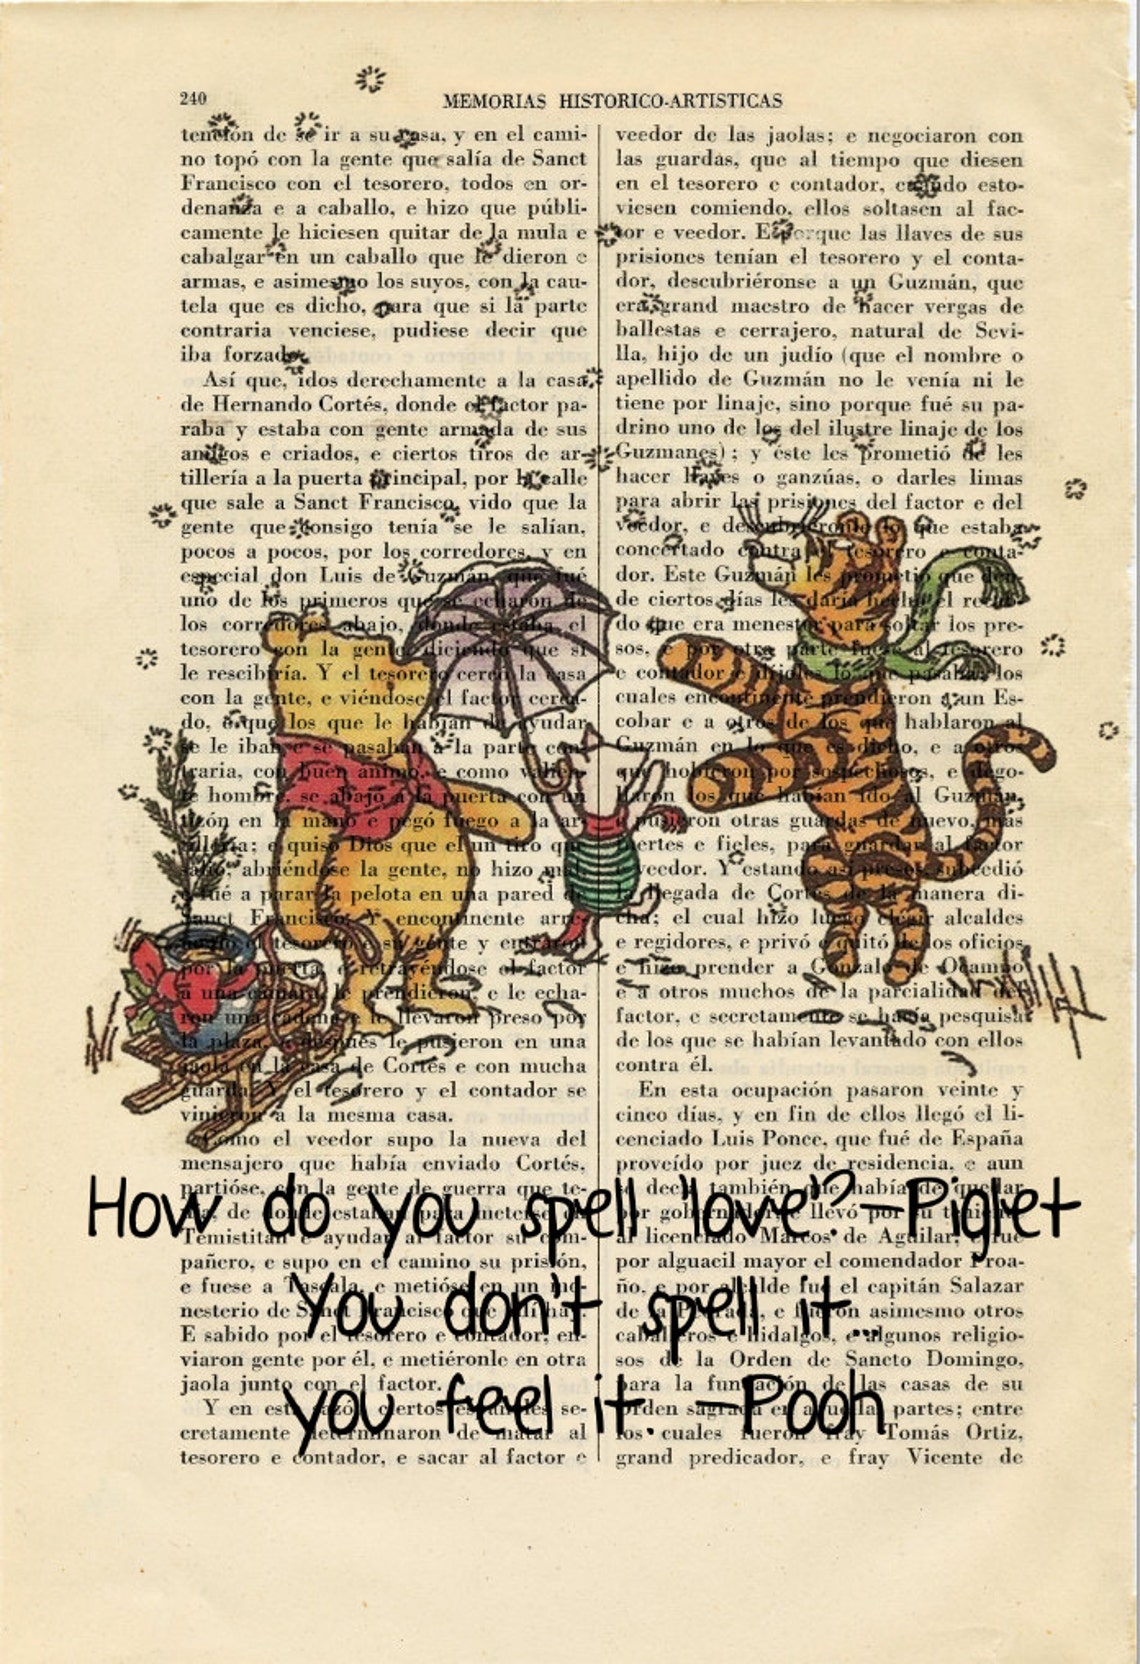 240
MEMORIAS HISTORICO-ARTISTICAS
tención de se ir a su casa, y en el cami-
no topó con la gente que salía de Sanct
Francisco con el tesorero, todos en or-
denanza e a caballo, e hizo que públi-
camente le hiciesen quitar de la mula e
cabalgar en un caballo que le dieron e
armas, e asimesmo los suyos, con la cau-
tela que es dicho, para que si la parte
contraria venciese, pudiese decir que
iba forzado.
Así que, idos derechamente a la casa
de Hernando Cortés, donde el factor pa-
raba y estaba con gente armada de sus
amigos e criados, e ciertos tiros de ar-
tillería a la puerta principal, por la calle
que sale a Sanct Francisco, vido que la
gente que consigo tenía se le salían,
pocos a pocos, por los corredores, y en
especial don Luis de Guzmán, que fué
uno de los primeros que se echaron de
los corredores abajo, donde estaba el
tesorero con la gente diciendo que si
le rescibiría. Y el tesorero cercó la casa
con la gente, e viéndose el factor cerca-
do, e que los que le habían de ayudar
se le iban e se pasaban a la parte con-
traria, con buen ánimo, e como valien-
te hombre, se abajó a la puerta con un
tizón en la mano e pegó fuego a la ar-
tillería; e quiso Dios que el un tiro que
salió, abriéndose la gente, no hizo mal,
e fué a parar la pelota en una pared de
Sanct Francisco. Y encontinente arre-
el tesorero e su gente y entraron
por la puerta, e retrayéndose el factor
a una cámara, le prendieron, e le echa-
ron una cadena e le llevaron preso por
la plaza, e después le pusieron en una
jaola en la casa de Cortés e con mucha
guarda. Y el tesorero y el contador se
vinieron a la mesma casa.
Como el veedor supo la nueva del
mensajero que había enviado Cortés,
partióse, con la gente de guerra que te-
nía, de donde estaba, para meterse en
Temistitán e ayudar al factor su com-
pañero, e supo en el camino su prisión,
e fuese a Tascala, e metióse en un mo-
nesterio de Sanct Francisco que allí hay.
E sabido por el tesorero e contador, en-
viaron gente por él, e metiéronle en otra
jaola junto con el factor.
Y en esta sazón ciertos se-
cretamente determinaron de matar al
tesorero e contador, e sacar al factor e
veedor de las jaolas; e negociaron con
las guardas, que al tiempo que diesen
en el tesorero e contador, cuando esto-
viesen comiendo, ellos soltasen al fac-
tor e veedor. E porque las llaves de sus
prisiones tenían el tesorero y el conta-
dor, descubriéronse a un Guzmán, que
era grand maestro de hacer vergas de
ballestas e cerrajero, natural de Sevi-
lla, hijo de un judío (que el nombre o
apellido de Guzmán no le venía ni le
tiene por linaje, sino porque fué su pa-
drino uno de los del ilustre linaje de los
Guzmanes); y éste les prometió de les
hacer llaves o ganzúas, o darles limas
para abrir las prisiones del factor e del
veedor, e descubriéronle lo que estaba
concertado contra el tesorero e conta-
dor. Este Guzmán les prometió que den-
de ciertos días les daría hecho el recab-
do que era menester para soltar los pre-
sos, e por otra parte fuese al tesorero
e contador e díjoles lo que pasaba, los
cuales encontinente prendieron a un Es-
cobar e a otros de los que hablaron al
Guzmán en lo que es dicho, e a otros
que hobieron por sospechosos, e dego-
llaron los que habían ido al Guzmán,
e pusieron otras guardas de nuevo, más
fuertes e fieles, para guardar al factor
e veedor. Y estando así presos subcedió
la llegada de Cortés de la manera di-
cha; el cual hizo luego elegir alcaldes
e regidores, e privó e quitó de los oficios,
e hizo prender a Gonzalo de Ocampo
e a otros muchos de la parcialidad del
factor, e secretamente se hacía pesquisa
de los que se habían levantado con ellos
contra él.
En esta ocupación pasaron veinte y
cinco días, y en fin de ellos llegó el li-
cenciado Luis Ponce, que fué de España
proveído por juez de residencia, e aun
se decía también que había de quedar
por gobernador, e llevó por su teniente
al licenciado Marcos de Aguilar, e fué
por alguacil mayor el comendador Proa-
ño, e por alcalde fué el capitán Salazar
de la Pedrada, e fueron asimesmo otros
caballeros e hidalgos, e algunos religio-
sos de la Orden de Sancto Domingo,
para la fundación de las casas de su
orden sagrada en aquellas partes; entre
los cuales fueron fray Tomás Ortiz,
grand predicador, e fray Vicente de
How do you spell 'love'? -Piglet
You don't spell it...
you feel it. -Pooh